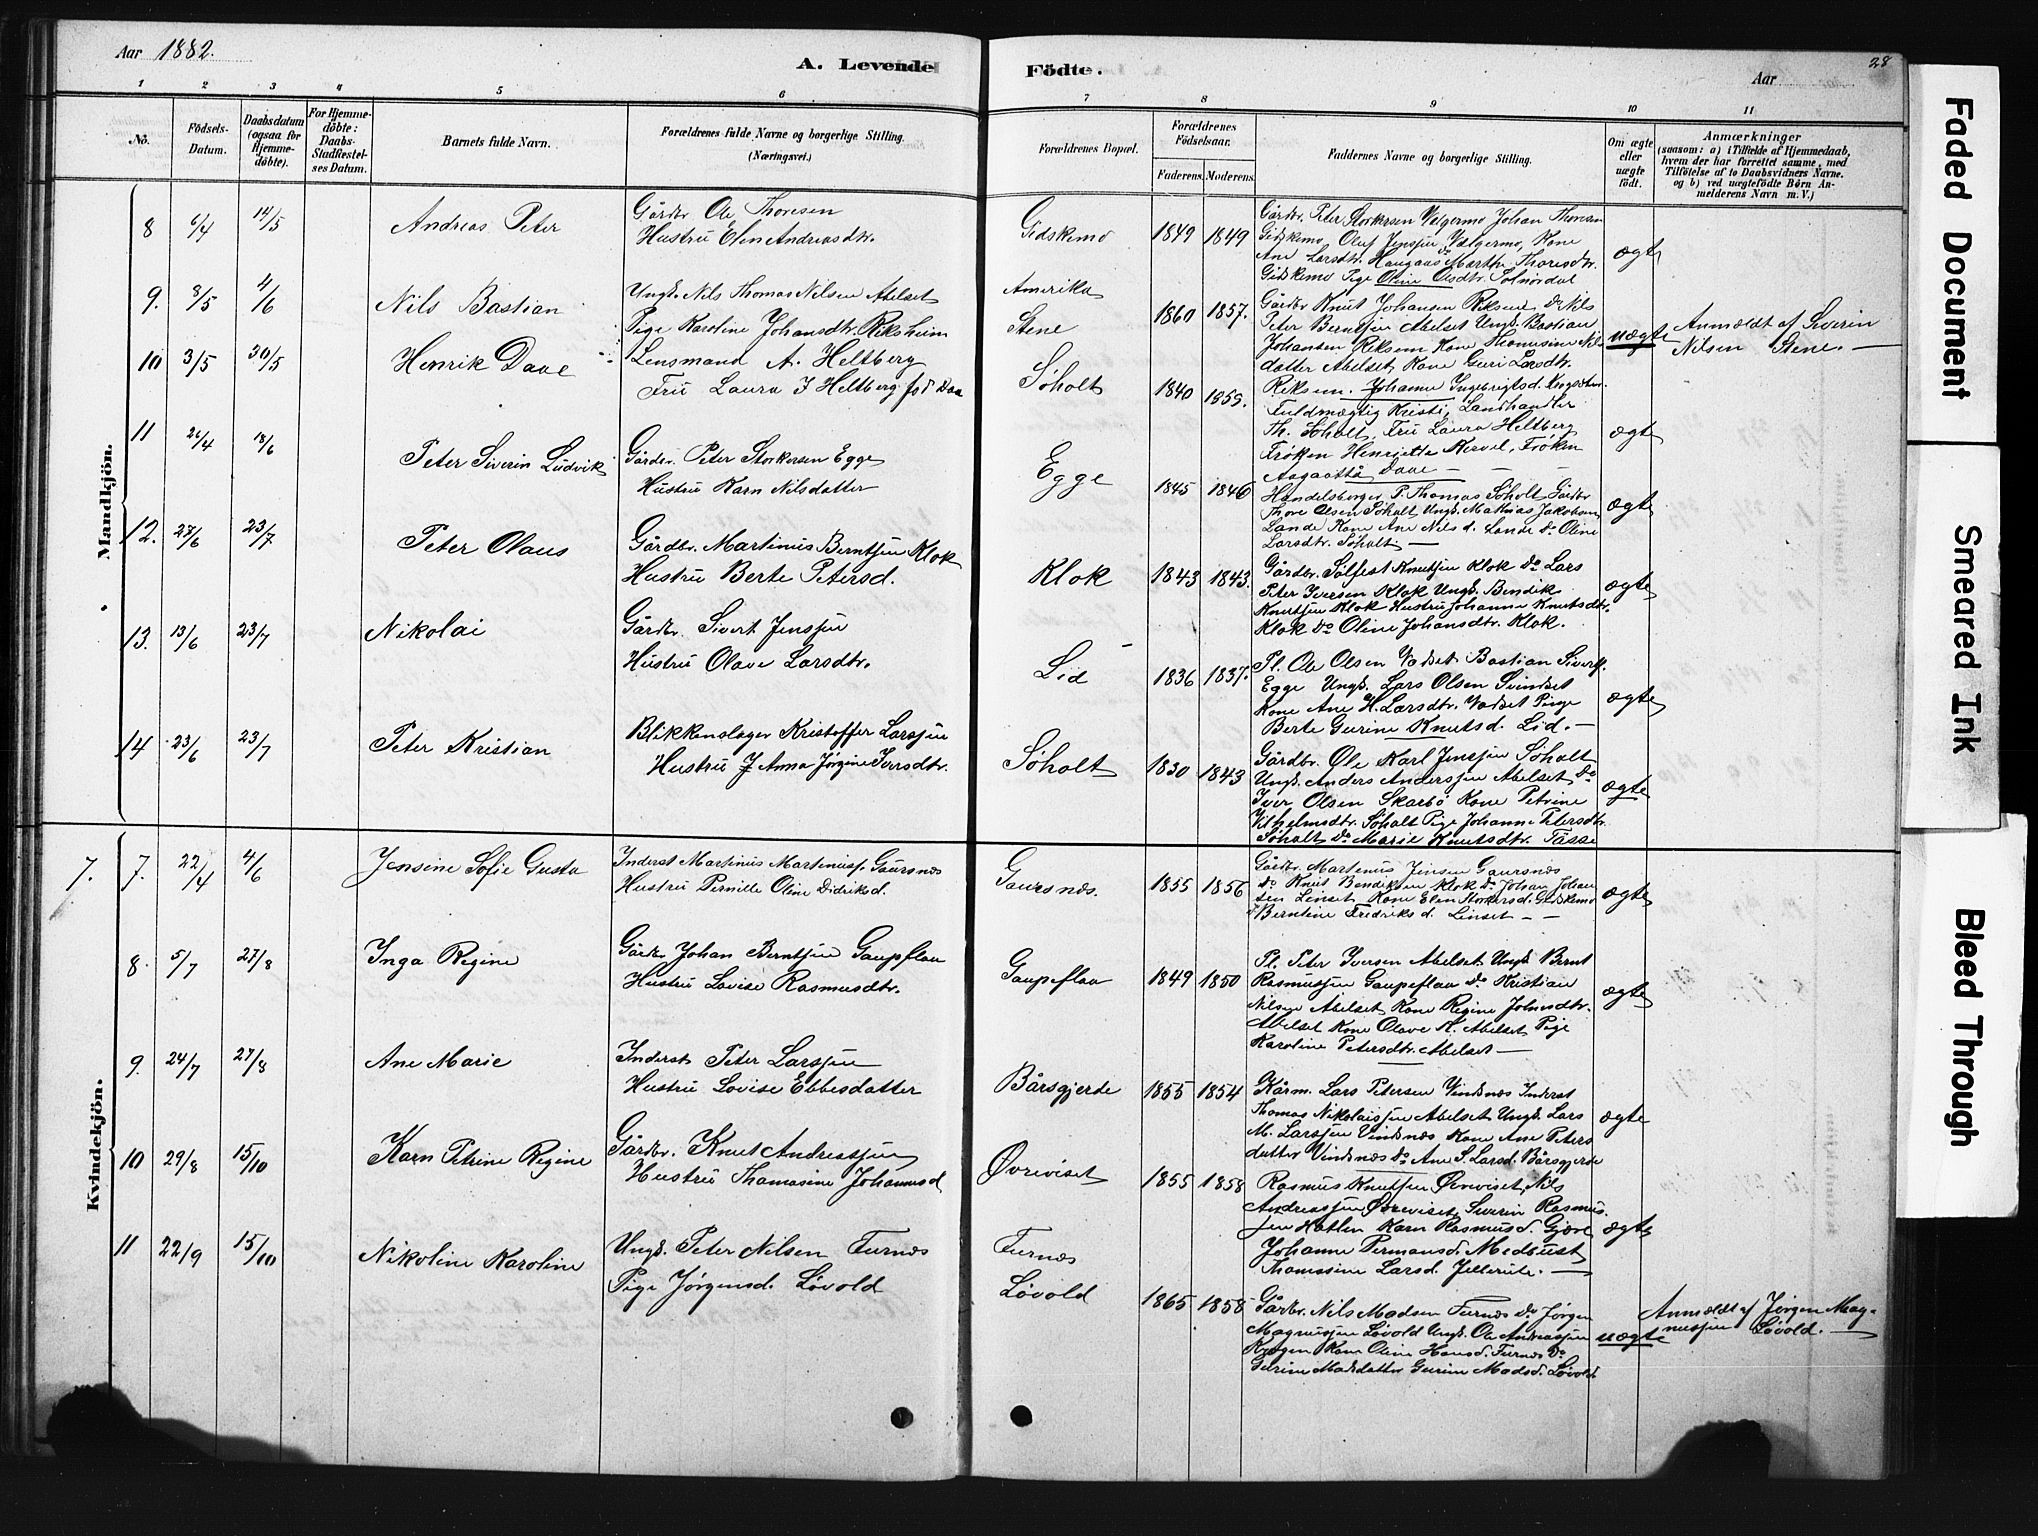 Aar 1882.
A. Levende Födte.
Aar
28
1 2 3 4 5 6 7 8 9 10 11
No.
Födsels-Datum.
Daabsdatum (ogsaa for Hjemme-döbte).
For Hjemme-döbte: Daabs-Stadfæstel-ses Datum.
Barnets fulde Navn.
Forældrenes fulde Navne og borgerlige Stilling.
(Næringsvei.)
Forældrenes Bopæl.
Forældrenes Födselsaar.
Faderens. Moderens.
Faddernes Navne og borgerlige Stilling.
Om ægte eller uægte födt.
Anmærkninger
(saasom: a) i Tilfælde af Hjemmedaab, hvem der har forrettet samme, med Tilföielse af to Daabsvidners Navne. og b) ved uægtefödte Börn Anmelderens Navn m. V.)
Mandkjön.
8 6/4 14/5 Andreas Peter
Gårdbr. Ole Thoresen
Hustru Elen Andreasdtr.
Gidskemo 1849 1849
Gårdbr. Peter Storkersen Velgermo Johan Thoresen
Gidskemo, Oluf Jenssen Vælgermo, Kone
Ane Larsdtr. Haugaas Do Marthe Thoresdtr.
Gidskemo Pige Oline Olsdtr. Solnørdal
ægte
9. 8/5 4/6 Nils Bastian
Ungk. Nils Thomas Nilsen Abelset
Pige Karoline Johansdtr. Riksheim
Amerika
Stene
1860 1857.
Gårdbr Knut Johansen Riksem Do Nils
Peter Berntsen Abelset Ungk. Bastian
Johansen Riksem Kone Thomasine Nils-
datter Abelset Kone Guri Larsdtr.
Riksem. Johanne Ingebrigtsd.
uægte
Anmeldt af Severin
Nilsen Stene. —
10 3/5 30/5 Henrik Daae
Lensmand A. Heltberg
Fru Laura J Heltberg fød Daa
Søholt 1840 1855.
Fuldmægtig Kristi, Landhandler
Th. Søholt, Fru Laura Heltberg
Frøken Henriette, Frøken
Aagaatha Daae —
ægte
11 26/4 18/6 Peter Siverin Ludvik
Gårdbr. Peter Storkersen Egge
Hustru Karn Nilsdatter
Egge 1845 1846
Handelsborger P. Thomas Søholt Gårdbr
Thore Olsen Søholt Ungk. Mathias Jakobsen
Lande Kone Ane Nilsd. Lande Do Oline
Larsdtr. Søholt —
ægte
12. 23/6 23/7 Peter Olaus
Gårdbr. Martinus Berntsen Klok
Hustru Berte Petersd.
Klok 1843 1843.
Gårdbr. Sølfest Knutsen Klok Do Lars
Peter Iversen Klok Ungk. Bendik
Knutsen Klok Hustru Johanne Knutsdtr.
Klok Do Oline Johansdtr. Klok.
ægte
13. 13/6 23/7 Nikolai
Gårdbr. Sivert Jenssen
Hustru Olave Larsdtr.
Lid 1836 1837.
Pl. Ole Olsen Vadset Bastian Siverts.
Egge Ungk. Lars Olsen Svindset
Kone Ane H. Larsdtr. Vadset Pige
Berte Gurine Knutsd. Lid. —
ægte
14 23/6 23/7 Peter Kristian
Blikkenslager Kristoffer Larssen
Hustru J Anna Jørgine Iversdtr.
Søholt 1830 1843
Gårdbr. Ole Karl Jenssen Søholt
Ungk. Anders Anderssen Abelset Do
Iver Olsen Skarbø Kone Petrine
Vilhelmsdtr. Søholt Pige Johanne Petersdtr.
Søholt Do Marie Knutsdtr. Tasse
ægte
Kvindekjön.
7. 7. 22/4 4/6 Jensine Sofie Gusta
Inderst Martinus Martinuss. Gaursnæs
Hustru Pernille Oline Didriksd.
Gaursnæs. 1855 1856
Gårdbr. Martinus Jensen Gaursnæs
Do Knut Bendiksen Klok Do Johan Johan
sen Linset, Kone Elen Storkersd. Gidskemo
Do Berntine Fredriksd. Linset — —
ægte
8. 5/7 27/8 Inga Regine
Gårdbr Johan Berntsen Gaupeflaa
Hustru Lovise Rasmusdtr.
Gaupeflaa 1849 1850
Pl. Peter Iversen Abelset Ungk Bernt
Rasmussen Gaupeflaa Do Kristian
Nilsen Abelset Kone Regine Johnsdtr.
Abelset Kone Olave N. Abelset Pige
Karoline Petersdtr. Abelset —
ægte
9. 24/7 27/8 Ane Marie
Inderst Peter Larssen
Hustru Lovise Ebbesdatter
Bårsgjerde 1855 1854
Kårm. Lars Petersen Vindsnæs Inderst
Thomas Nikolaissen Abelset Ungk. Lars
M. Larssen Vindsnæs Kone Ane Peters
datter Vindsnæs Do Ane S. Larsd. Bårsgjerde
ægte
10 29/8 15/10 Karn Petrine Regine
Gårdbr. Knut Andreassen
Hustru Thomasine Johannesd
Øvreviset 1855 1858
Rasmus Knutsen Øvreviset, Nils
Andreassen Øvreviset, Severin Rasmus-
sen Hatlen Karn Rasmusd. Gjære
Johanne Permansd. Medbust
Thomasine Larsd. Jelleride. —
ægte
11 22/9 15/10 Nikoline Karoline
Ungk. Peter Nilsen Furnæs
Pige Jørgensd. Løvold
Furnæs
Løvold
1865 1858
Gårdbr. Nils Madsen Furnæs Do Jørgen
Magnussen Løvold Ungk. Ole Andreassen
Kone Oline Hansd. Furnæs Do
Gurine Madsdatter Gurine Madsd. Løvold
uægte
Anmeldt af Jørgen Mag-
nussen Løvold. —
Faded Document
Smeared Ink
Bleed Through